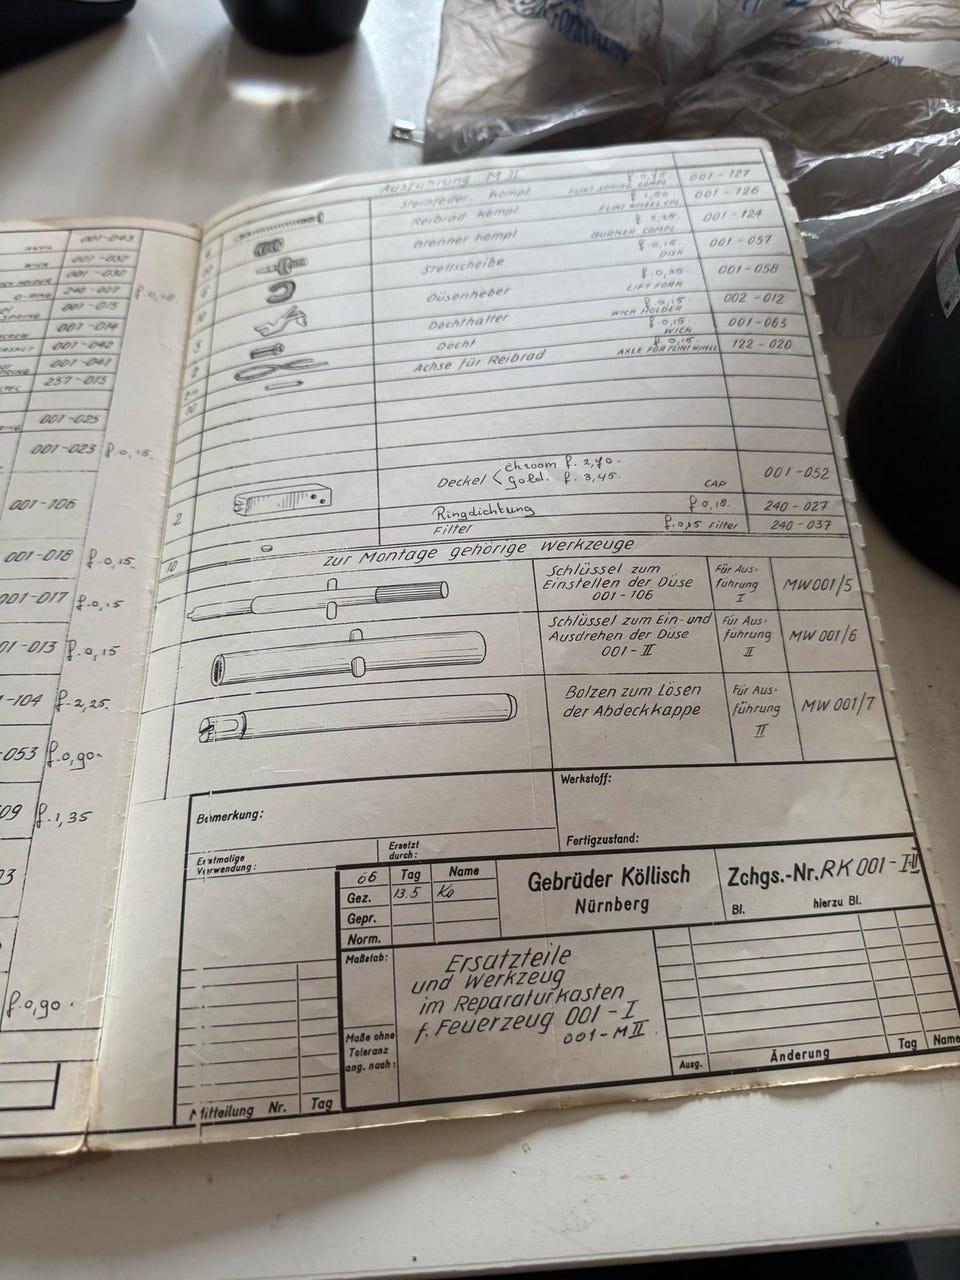 001-043
WICK 001-032
001-030
O-RING 240-027 f. 0,18
SPRING 001-015
001-014
001-042
001-041
237-015
001-025
001-023 f. 0,15.
001-106
001-018 f. 0,15.
001-017 f. 0,15
01-013 f. 0,15
-104 f. 2,25.
-053 f. 0,90-
09 f. 1,35
03
f. 0,90.
Ausführung M II
Steinfeder kompl f. 0,45 FLINT SPRING COMPL 001-127
Reibrad kompl. f. 1,50 FLINT WHEEL CPL 001-126
Brenner kompl f. 0,25. BURNER COMPL 001-124
Stellscheibe f. 0,15. DISK 001-057
Düsenheber f. 0,30 LIFT FORK 001-058
Dochthalter f. 0,15 WICK HOLDER 002-012
Docht f. 0,15. WICK 001-063
Achse für Reibrad f. 0,15 AXLE FOR FLINT WHEEL 122-020
10
Deckel chroom f. 2,70.
gold. f. 3,45. CAP 001-052
2 Ringdichtung f. 0,18. 240-027
10 Filter f. 0,15 Filter 240-037
zur Montage gehörige Werkzeuge
Schlüssel zum Einstellen der Düse 001-106 Für Ausführung I MW001/5
Schlüssel zum Ein- und Ausdrehen der Düse 001-II Für Ausführung II MW 001/6
Bolzen zum Lösen der Abdeckkappe Für Ausführung II MW 001/7
Bemerkung:
Werkstoff:
Fertigzustand:
Erstmalige Verwendung:
Ersetzt durch:
66 Tag Name
Gez. 13.5 Kö
Gepr.
Norm.
Gebrüder Köllisch
Nürnberg
Zchgs.-Nr. RK 001-I+II
Bl. hierzu Bl.
Maßstab:
Maße ohne
Toleranz
ang. nach:
Ersatzteile
und Werkzeug
im Reparaturkasten
f. Feuerzeug 001-I
001-M II.
Ausg. Änderung Tag Name
Mitteilung Nr. Tag